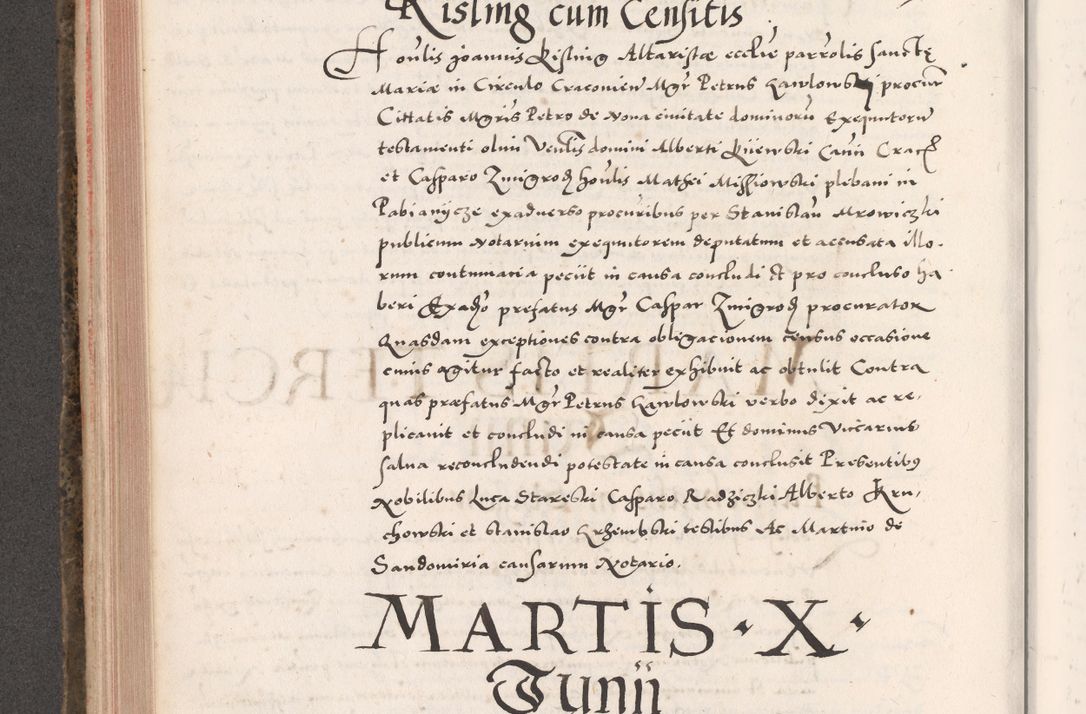 Kisling cum Censitis
Honlis Joannis Kisling Altaristæ ecclie parrolis Sanctę
Mariæ in Circulo Cracovien Mgr Petrus Gawlowski procur
Cittatis Mgris Petro de Nova civitate dominoru Exequutoru
testamenti olim Venlis domini Alberti Kijewski Canci Crac
et Casparo Zmigrod honlis Mathei Missiowski plebani in
Pabianijcze exadverso procuribus per Stanislau Mrowiczki
publicum Notarium exequutorem deputatum et accusata illo-
rum contumacia peciit in causa concludi Et pro concluso ha-
beri Exado prefatus Mgr Caspar Zmigrod procurator
Quasdam exceptiones contra obligacionem census occasione
cuius agitur facto et realiter exhibuit ac obtulit Contra
quas præfatus Mgr Petrus Gawlowski verbo dixit ac re-
plicavit et concludi in causa peciit Et dominus Viccarius
salva reconcludendi potestate in causa conclusit Presentibus
Nobilibus Luca Stareski Casparo Radziczki Alberto Kru-
chowski et Stanislao Grzembski testibus Ac Martino de
Sandomiria causarum Notario.
MARTIS · X ·
Iunii